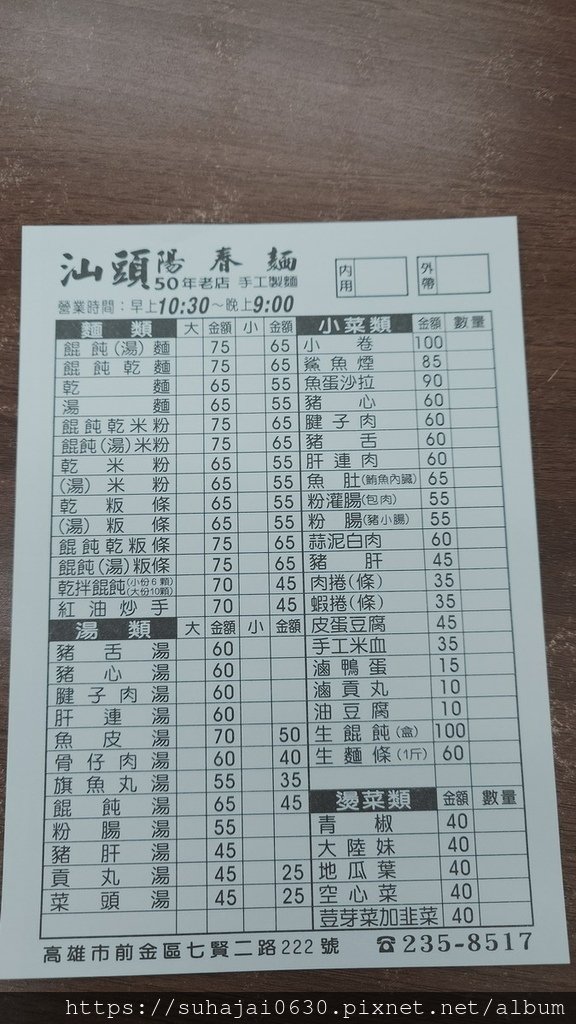 汕頭陽春麵
50年老店 手工製麵
內用
外帶
營業時間：早上10:30～晚上9:00
麵類 大 金額 小 金額
餛飩(湯)麵 75 65
餛飩乾麵 75 65
乾麵 65 55
湯麵 65 55
餛飩乾米粉 75 65
餛飩(湯)米粉 75 65
乾米粉 65 55
(湯)米粉 65 55
乾粄條 65 55
(湯)粄條 65 55
餛飩乾粄條 75 65
餛飩(湯)粄條 75 65
乾拌餛飩(小份6顆)(大份10顆) 70 45
紅油炒手 70 45
湯類 大 金額 小 金額
豬舌湯 60
豬心湯 60
腱子肉湯 60
肝連湯 60
魚皮湯 70 50
骨仔肉湯 60 40
旗魚丸湯 55 35
餛飩湯 65 45
粉腸湯 55
豬肝湯 45
貢丸湯 45 25
菜頭湯 45 25
小菜類 金額 數量
小卷 100
鯊魚煙 85
魚蛋沙拉 90
豬心 60
腱子肉 60
豬舌 60
肝連肉 60
魚肚(鮪魚內臟) 65
粉灌腸(包肉) 55
粉腸(豬小腸) 55
蒜泥白肉 60
豬肝 45
肉捲(條) 35
蝦捲(條) 35
皮蛋豆腐 45
手工米血 35
滷鴨蛋 15
滷貢丸 10
油豆腐 10
生餛飩(盒) 100
生麵條(1斤) 60
燙菜類 金額 數量
青椒 40
大陸妹 40
地瓜葉 40
空心菜 40
荳芽菜加韭菜 40
高雄市前金區七賢二路222號 ☎235-8517
https://suhajai0630.pixnet.net/album